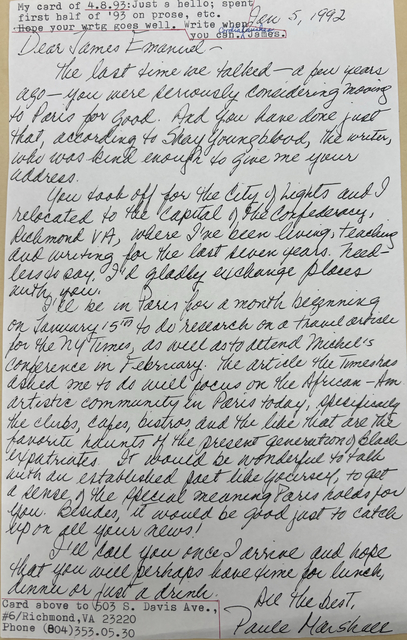 My card of 4.8.93:Just a hello; spent
first half of '93 on prose, etc.
Hope your wrtg goes well. Write when
you can. James.
Jan 5, 1992
Dear James Emanuel -
The last time we talked - a few years
ago - you were seriously considering moving
to Paris for good. And you have done just
that, according to Shay Youngblood, the writer,
who was kind enough to give me your
address.
You took off for the City of Lights and I
relocated to the Capital of the Confederacy,
Richmond VA, where I've been living, teaching
and writing for the last seven years. Need-
less to say, I'd gladly exchange places
with you.
I'll be in Paris for a month beginning
on January 15th to do research on a travel article
for the NY Times, as well as to attend Michel's
conference in February. The article the Times has
asked me to do will focus on the African-Am
artistic community in Paris today, specifically
the clubs, cafes, bistros and the like that are the
favorite haunts of the present generation of Black
expatriates. It would be wonderful to talk
with an established poet like yourself, to get
a sense of the special meaning Paris holds for
you. Besides, it would be good just to catch
up on all your news!
I'll call you once I arrive and hope
that you will perhaps have time for lunch,
dinner or just a drink.
All the Best,
Paule Marshall
Card above to 503 S. Davis Ave.,
#6/Richmond, VA 23220
Phone (804)353.05.30